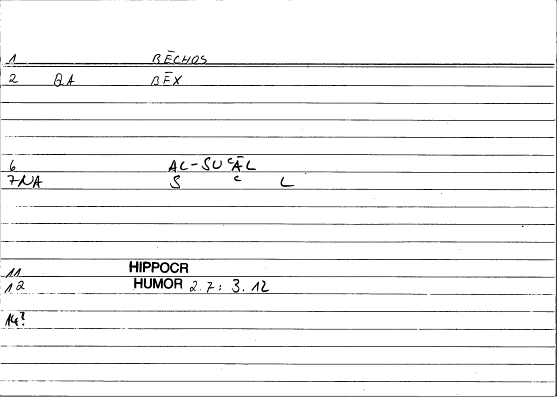 1 BĒCHOS
2 QA BĒX
6 AL-SUʿĀL
7 NA S ʿ L
11 HIPPOCR
12 HUMOR 2.7: 3.12
14?